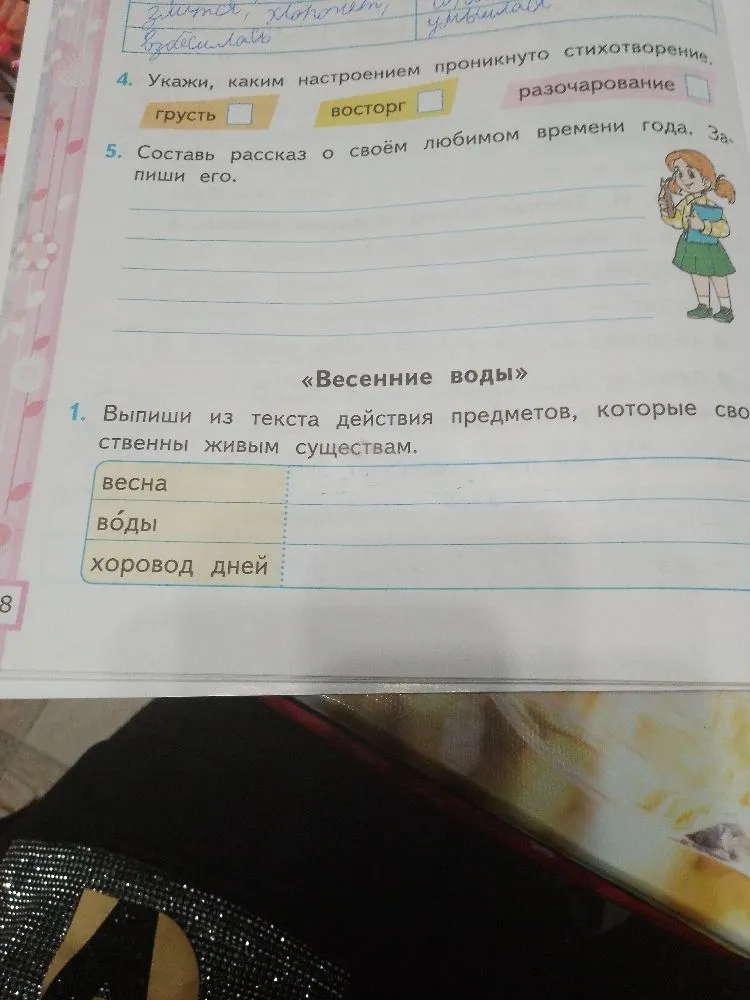 злится, хлопочет,
взбесилась
умылась
4. Укажи, каким настроением проникнуто стихотворение.
грусть
восторг
разочарование
5. Составь рассказ о своём любимом времени года. За-
пиши его.
«Весенние воды»
1. Выпиши из текста действия предметов, которые сво
ственны живым существам.
весна
во́ды
хоровод дней
8